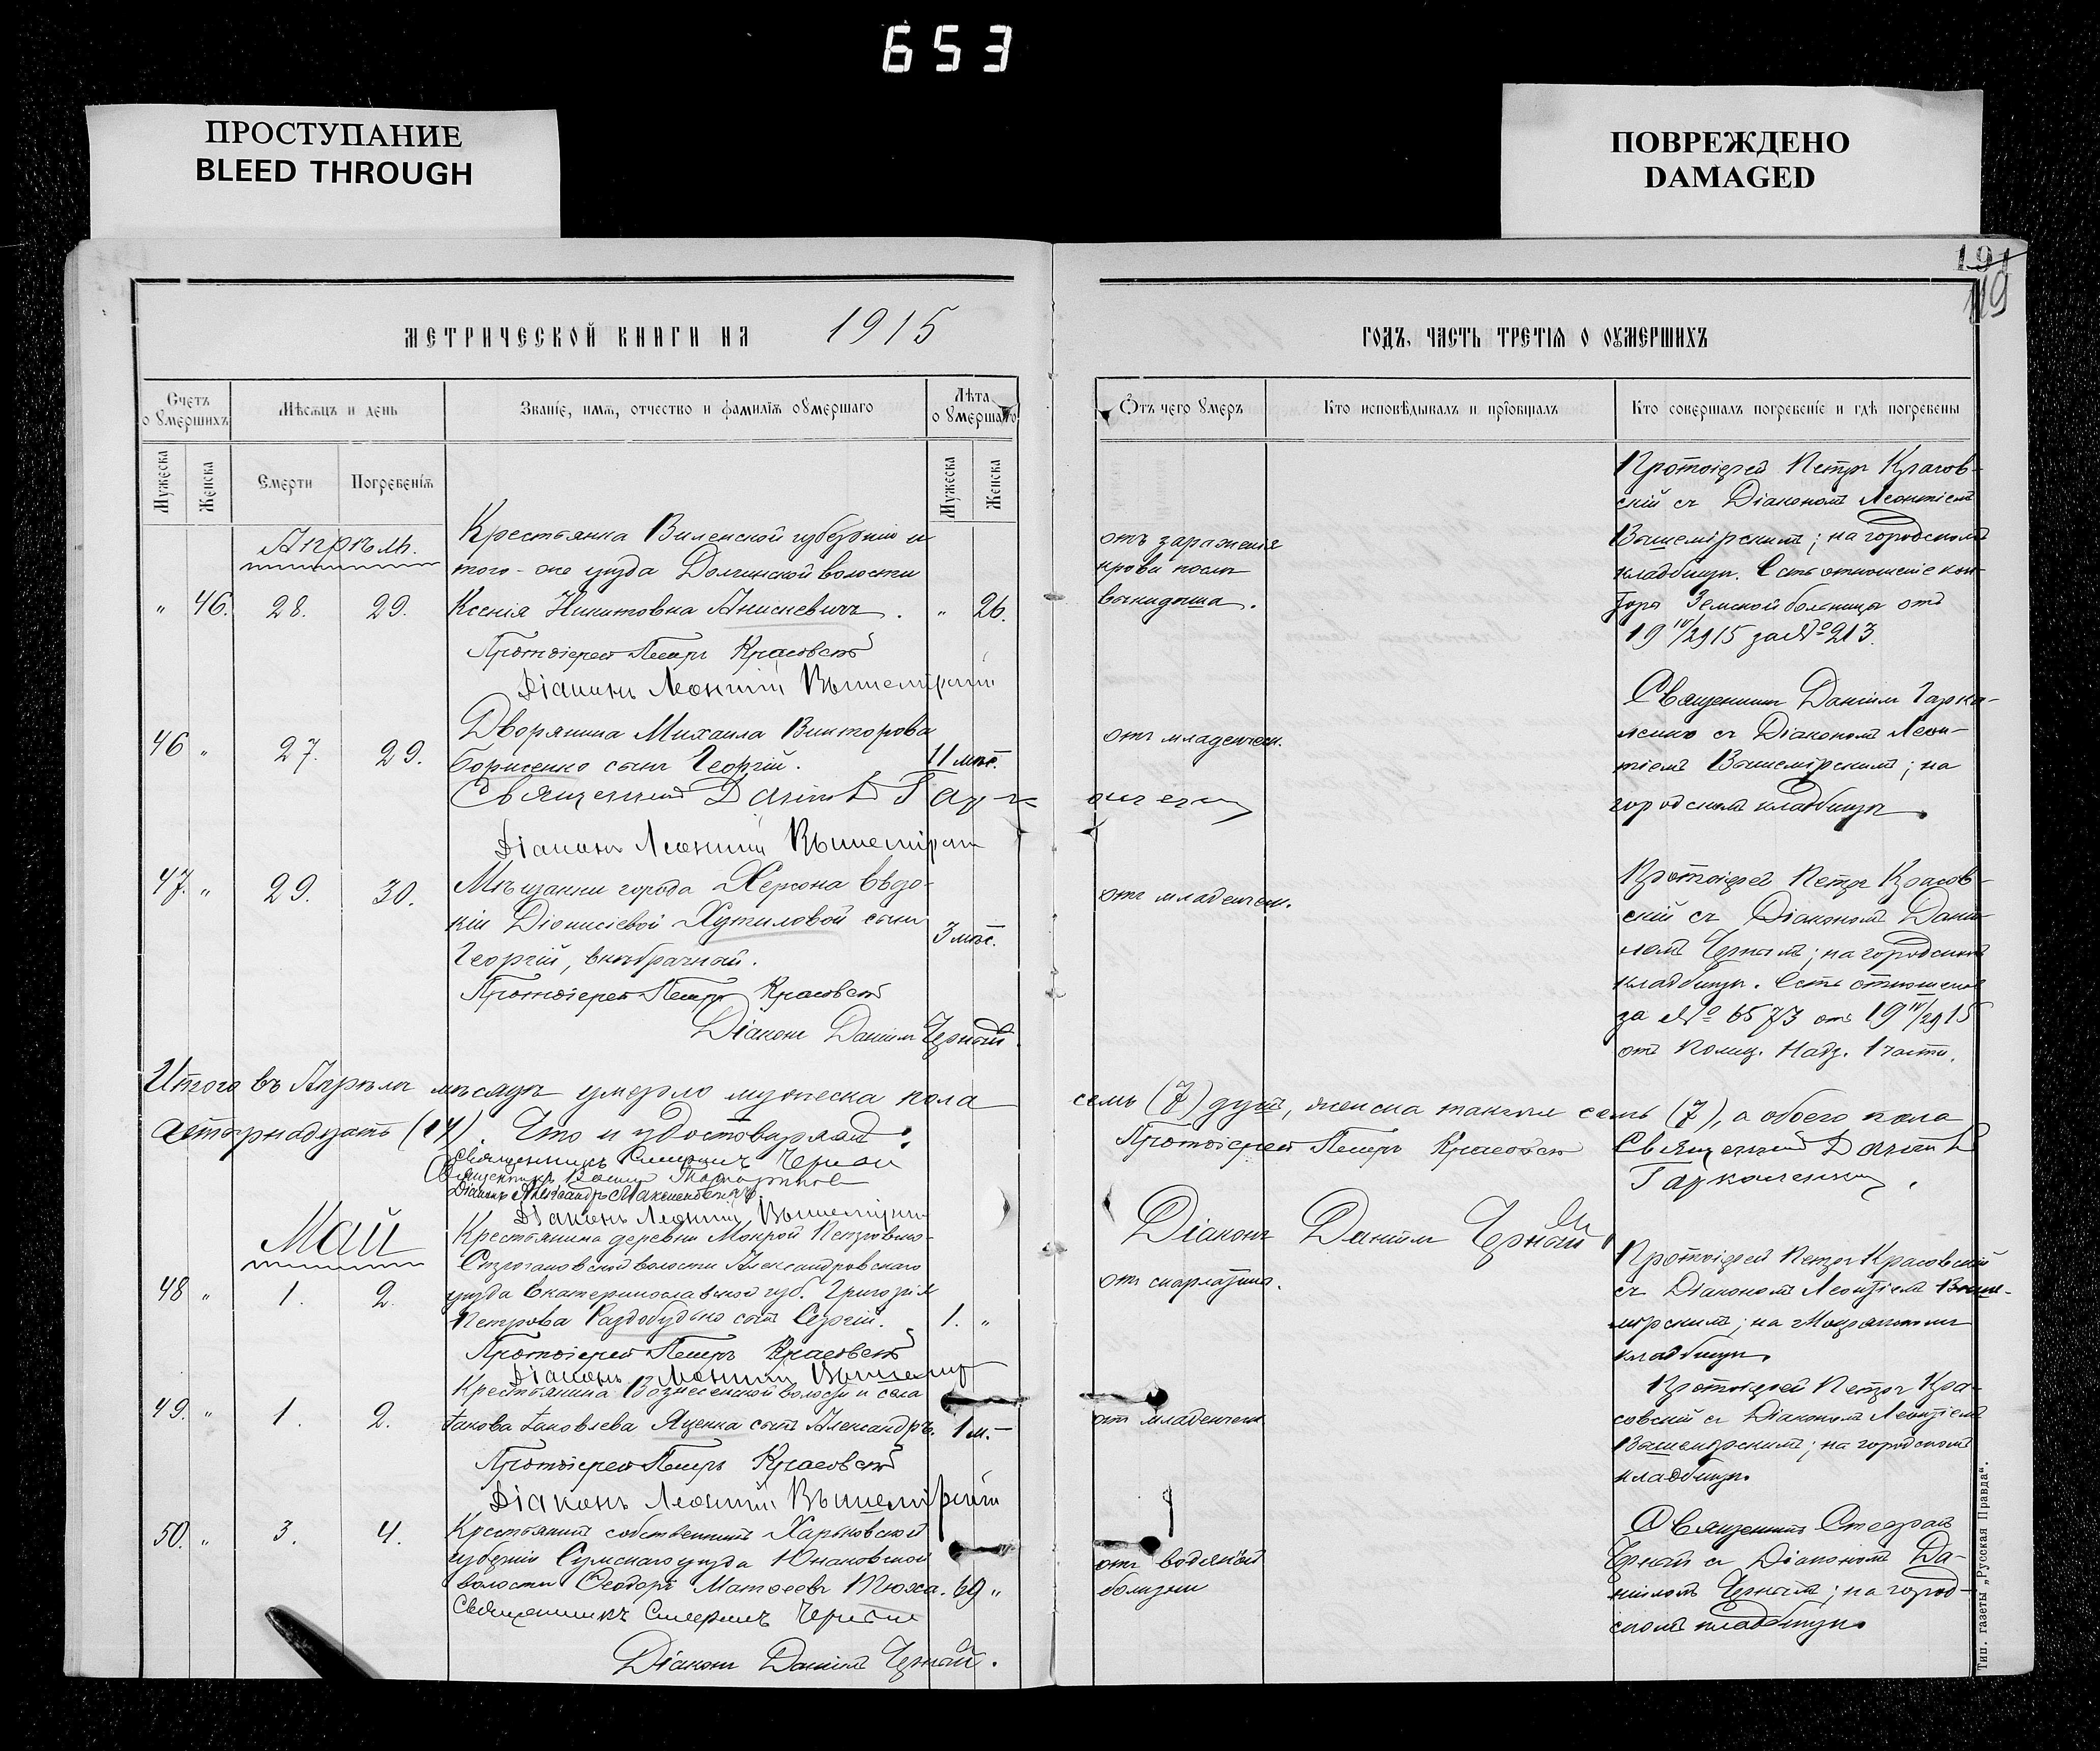 653
ПРОСТУПАНИЕ
BLEED THROUGH
ПОВРЕЖДЕНО
DAMAGED
191
119
МЕТРИЧЕСКОЙ КНИГИ НА 1915
ГОДЪ, ЧАСТЬ ТРЕТІЯ О ОУМЕРШИХЪ
Счетъ оумершихъ
Мѣсяцъ и день
Званіе, имя, отчество и фамилія оумершаго
Лѣта оумершаго
Отъ чего умеръ
Кто исповѣдывалъ и пріобщалъ
Кто совершалъ погребеніе и гдѣ погребены
Мужеска
Женска
Смерти
Погребенія
Мужеска
Женска
Апрѣль.
" 46. 28. 29.
Крестьянка Виленской губерніи и
того-же уѣзда Долгинской волости
Ксенія Никитовна Анискевичъ. " 26.
отъ зараженія
крови послѣ
выкидыша.
Протоіерей Петръ Красов-
скій съ Діакономъ Леонтіемъ
Вышемірскимъ; на городскомъ
кладбищѣ. Есть отношеніе кон-
торы Земской больницы отъ
19 IV/29 15 за № 213.
Протоіерей Петръ Красовскій
Діаконъ Леонтій Вышемірскій
46 " 27. 29.
Дворянина Михаила Викторова
Борисенко сынъ Георгій. 11 мѣс.
отъ младенческ.
Священникъ Даніилъ Гарка-
ленко съ Діакономъ Леон-
тіемъ Вышемірскимъ; на
городскомъ кладбищѣ.
Священникъ Даніилъ
Діаконъ Леонтій Вышемірскій
47. " 29. 30.
Мѣщанки города Херсона Евдо-
кіи Діонисіевой Хутиловой сынъ
Георгій, внѣбрачный. 3 мѣс.
отъ младенческ.
Протоіерей Петръ Красов-
скій съ Діакономъ Дані-
иломъ Чернымъ; на городскомъ
кладбищѣ. Есть отношеніе
за № 6573 отъ 19 IV/29 15
отъ Полиц. Надз. 1 части.
Протоіерей Петръ Красовскій
Діаконъ Даніилъ Черный
Итого въ Апрѣлѣ мѣсяцѣ умерло мужеска пола семь (7) душъ, женска также семь (7), а обоего пола
четырнадцать (14) Что и удостовѣряемъ:
Протоіерей Петръ Красовскій
Священникъ Даніилъ
Гаркаленко
Священникъ Стефанъ Черный
Священникъ
Діаконъ Александръ
Діаконъ Леонтій Вышемірскій
Діаконъ Даніилъ Черный
Май
48 " 1. 2.
Крестьянина деревни Мокрой Петровско-
Строгановской волости Александровскаго
уѣзда Екатеринославской губ. Григорія
Петрова Раздобудько сынъ Сергій. 1. "
отъ скарлатины.
Протоіерей Петръ Красовскій
съ Діакономъ Леонтіемъ Выше-
мірскимъ; на Мокрянскомъ
кладбищѣ.
Протоіерей Петръ Красовскій
Діаконъ Леонтій Вышемір
49. " 1. 2.
Крестьянина Вознесенской волости и села
Іакова Іаковлева Яценка сынъ Александръ. 1 м.
отъ младенческ.
Протоіерей Петръ Кра-
совскій съ Діакономъ Леонтіемъ
Вышемірскимъ; на городскомъ
кладбищѣ.
Протоіерей Петръ Красовскій
Діаконъ Леонтій Вышемірскій
50. " 3. 4.
Крестьянинъ собственникъ Харьковской
губерніи Сумскаго уѣзда Юнаковской
волости Ѳеодоръ Матѳеевъ Тюха. 69 "
отъ водяной
болѣзни
Священникъ Стефанъ
Черный съ Діакономъ Да-
ніиломъ Чернымъ; на город-
скомъ кладбищѣ.
Священникъ Стефанъ Черный
Діаконъ Даніилъ Черный.
Тип. газеты „Русская Правда“.